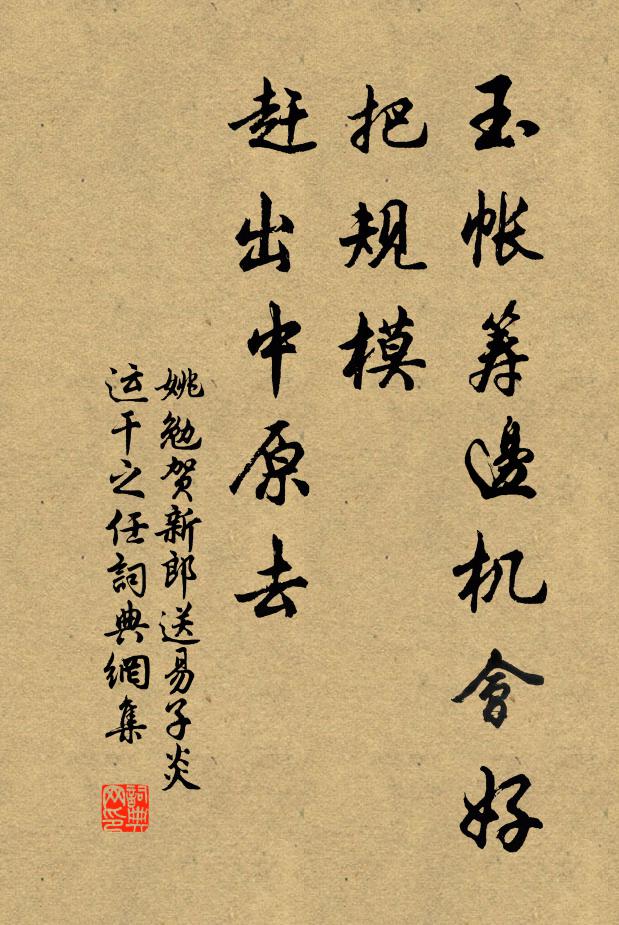 玉帐筹邊机會好
把规模
赶出中原去
姚勉贺新郎送易子炎
运干之任詞典網集
詞典网印